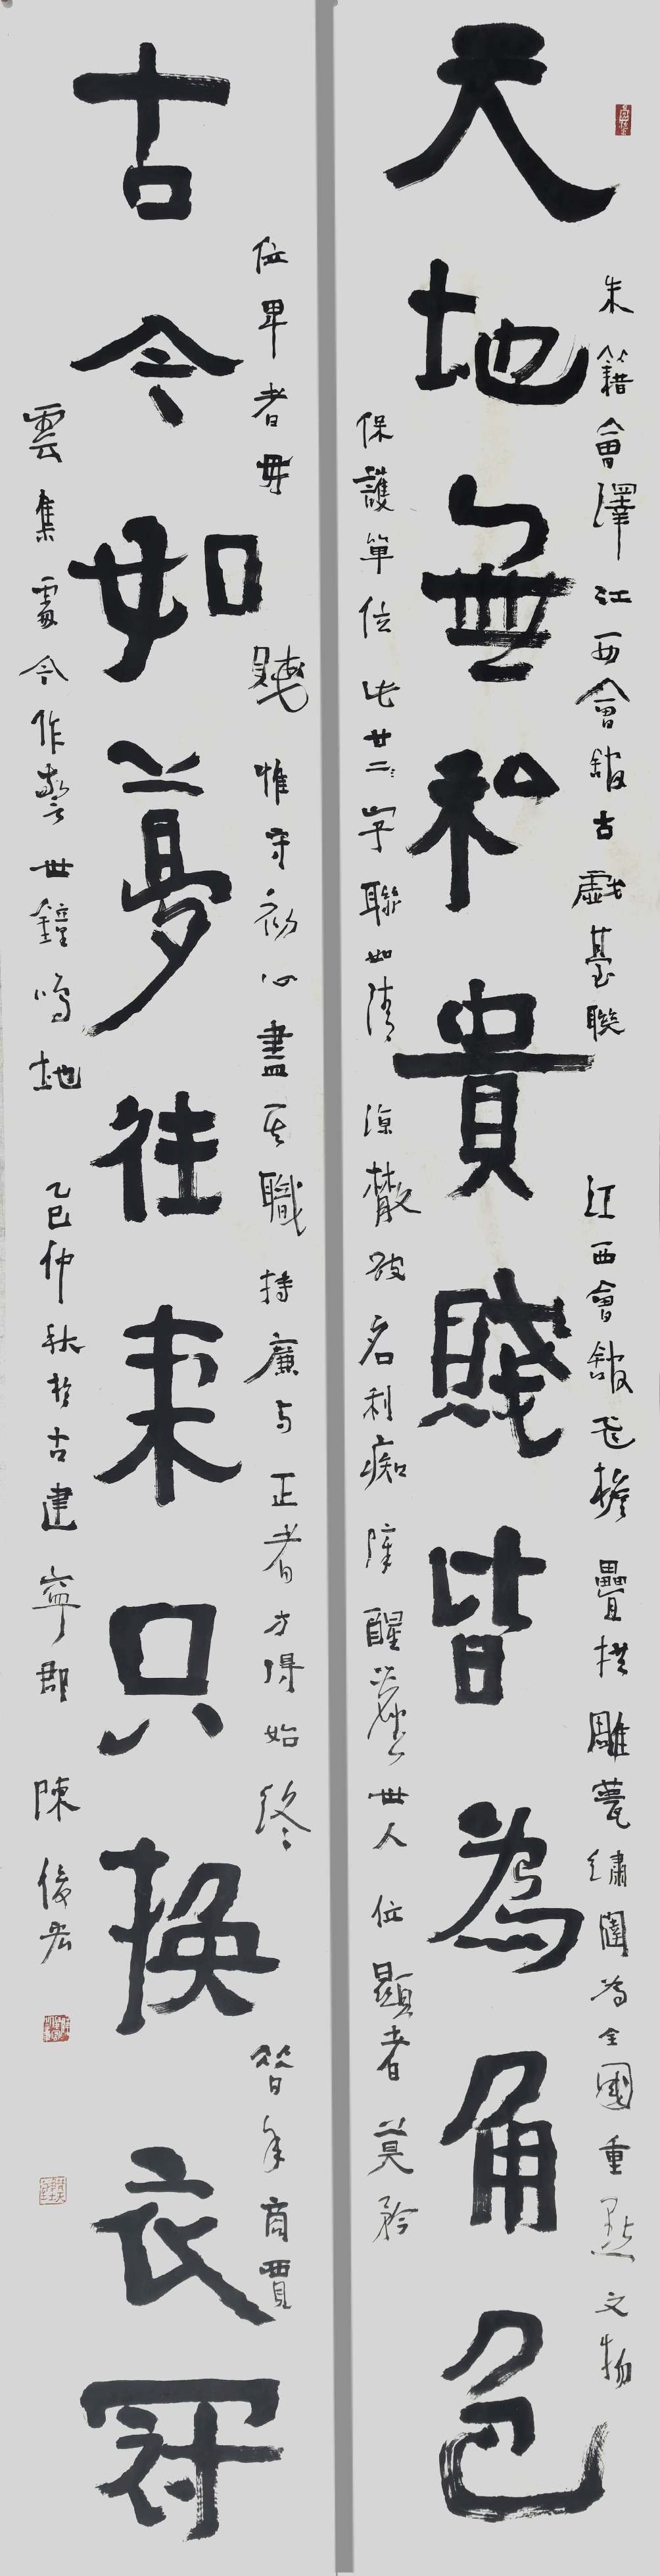 天地無私貴賤皆為角色
朱籍會澤江西會館古戲臺聯 江西會館飛檐疊拱雕甍繡闥為全國重點文物
保護單位此廿二字聯如清涼散破名利痴障醒塵世人位顯者莫矜
古今如夢往來只換衣冠
位卑者毋賤惟守初心盡其職持廉與正者方得始終 昔年商賈
雲集處今作警世鐘鳴地 乙巳仲秋於古建寧郡 陳俊宏